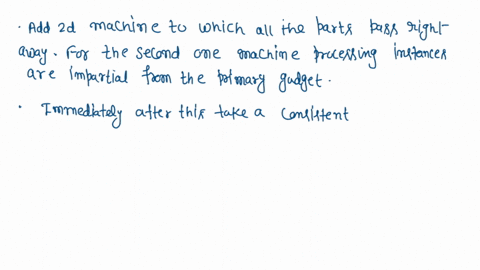 · Add 2d machine to which all the parts pass right-
away. For the second one machine processing instances
are impartial from the primary gudget.
· Immediately after this take a consistent